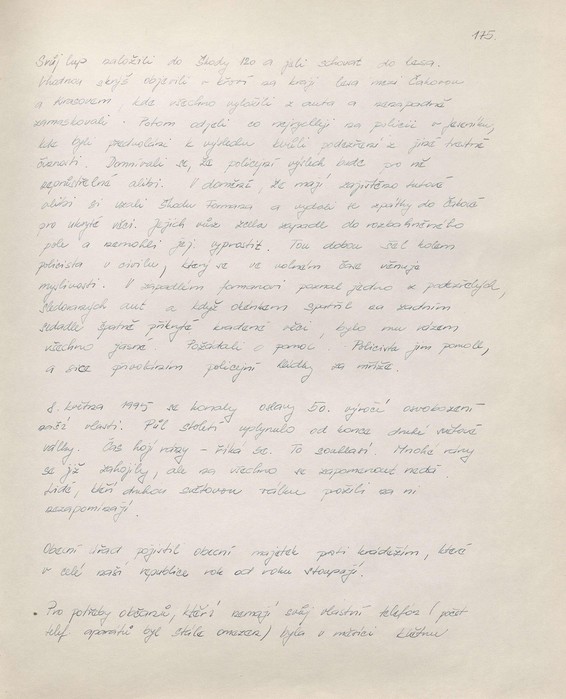 175.
Svůj lup naložili do Škody 120 a jeli schovat do lesa.
Vhodnou skrýš objevili v křoví na kraji lesa mezi Čakovou
a Krasovem, kde všechno vyložili z auta a nenápadně
zamaskovali. Potom odjeli co nejrychleji na policii v Jeseníku,
kde byli předvoláni k výslechu kvůli podezření z jiné trestné
činnosti. Domnívali se, že policejní výslech bude pro ně
neprůstřelné alibi. V domnění, že mají zajištěno takové
alibi si vzali Škodu Formana a vydali se zpátky do Čakové
pro ukryté věci. Jejich vůz zcela zapadl do rozbahněného
pole a nemohli jej vyprostit. Tou dobou šel kolem
policista v civilu, který se ve volném čase věnuje
myslivosti. V zapadlém formanovi poznal jedno z podezřelých,
sledovaných aut a když okénkem spatřil na zadním
sedadle špatně přikryté kradené věci, bylo mu rázem
všechno jasné. Požádali o pomoc. Policista jim pomohl,
a sice přivoláním policejní hlídky za mříže.
8. května 1995 se konaly oslavy 50. výročí osvobození
naší vlasti. Půl století uplynulo od konce druhé světové
války. Čas hojí rány - říká se. To souhlasí. Mnohé rány
se již zahojily, ale na všechno se zapomenout nedá.
Lidé, kteří druhou světovou válku prožili na ni
nezapomínají.
Obecní úřad pojistil obecní majetek proti krádežím, které
v celé naší republice rok od roku stoupají.
Pro potřeby občanů, kteří nemají svůj vlastní telefon (počet
telef. aparátů byl stále omezen) byla v měsíci květnu